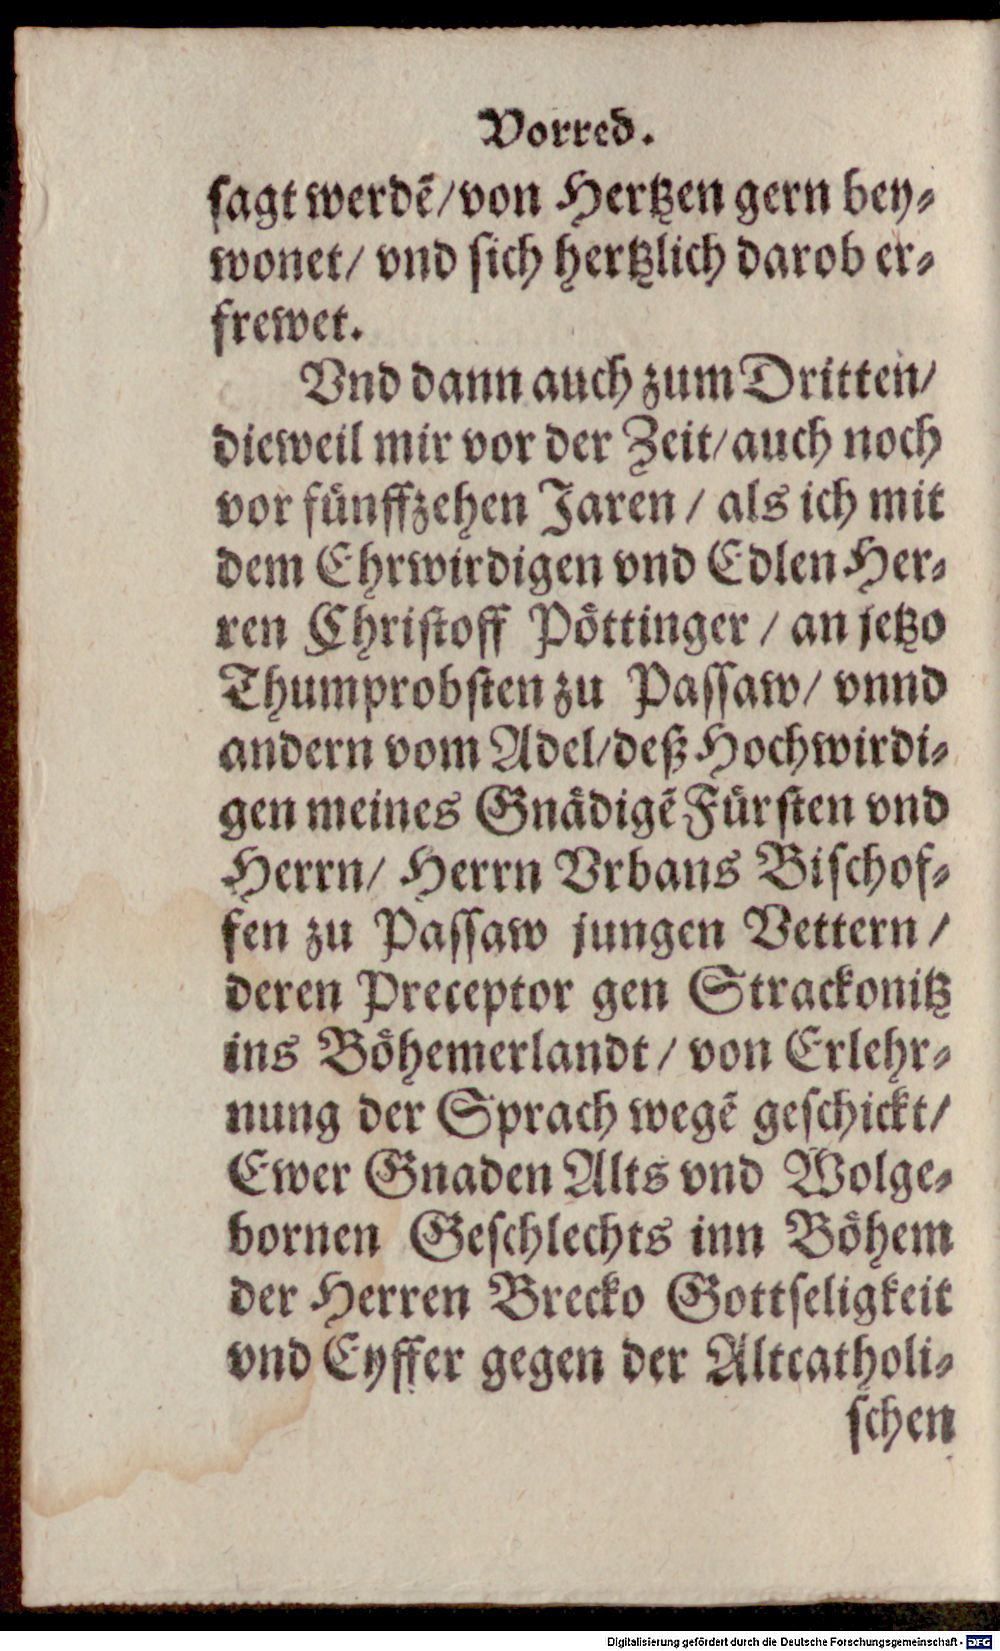 Vorred.
ſagt werdẽ/von Hertzen gern bey⸗
wonet/ vnd ſich hertzlich darob er⸗
frewet.
Vnd dann auch zum Dritten/
dieweil mir vor der Zeit/auch noch
vor fuͤnffzehen Jaren/ als ich mit
dem Ehrwirdigen vnd Edlen Her⸗
ren Chriſtoff Poͤttinger/ an jetzo
Thumprobſten zu Paſſaw/ vnnd
andern vom Adel/deß Hochwirdi⸗
gen meines Gnaͤdigẽ Fuͤrſten vnd
Herrn/ Herrn Vrbans Biſchof⸗
fen zu Paſſaw jungen Vettern/
deren Preceptor gen Strackonitz
ins Boͤhemerlandt/ von Erlehr⸗
nung der Sprach wegẽ geſchickt/
Ewer Gnaden Alts vnd Wolge⸗
bornen Geſchlechts inn Boͤhem
der Herren Brecko Gottſeligkeit
vnd Eyffer gegen der Altcatholi⸗
ſchen
Digitalisierung gefördert durch die Deutsche Forschungsgemeinschaft - DFG